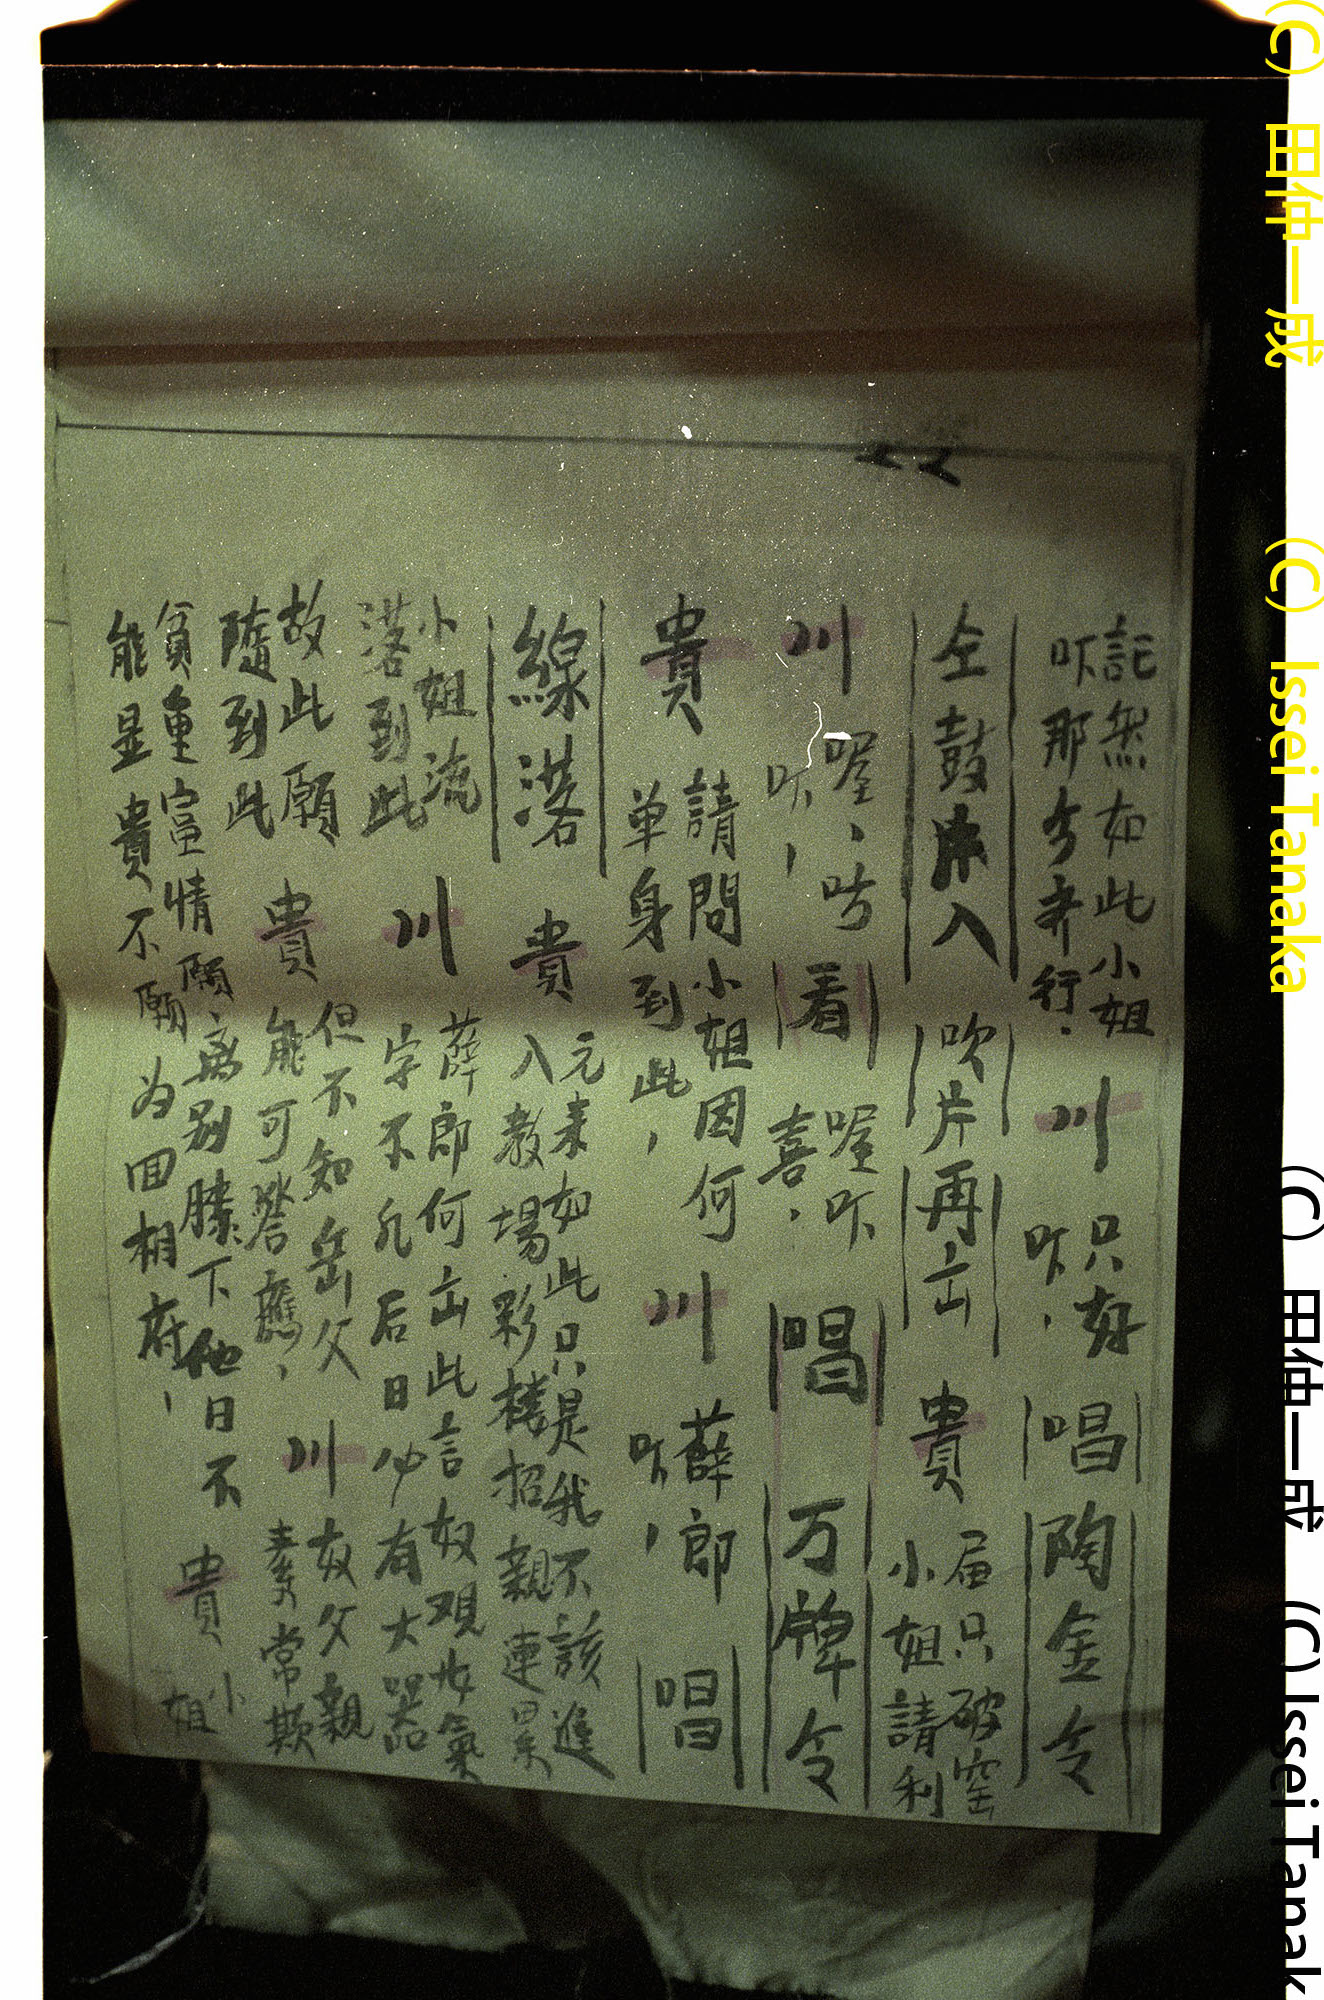 記無如此小姐
吓那兮奔行.
川
只好
吓.
唱
陶金令
仝鼓
入
吹片
再出
貴
届只破窑
小姐請利
川
喔、咭
吓,
看
喔吓
喜.
唱
万牌令
貴
請問小姐因何
单身到此,
川
薛郎
吓,
唱
線落
貴
元来如此只是我不該進
入教場彩楼招親連累
小姐流
落到此
川
薛郎何出此言奴观汝氣
字不凡后日必有大器
故此願
隨到此
貴
但不知岳父
能可答應,
川
奴父親
素常欺
貧重富情願离别膝下他日不
能显貴不願为回相府,
貴
小
姐
(C) 田仲一成 (C) Issei Tanaka
(C) 田仲一成 (C) Issei Tanak